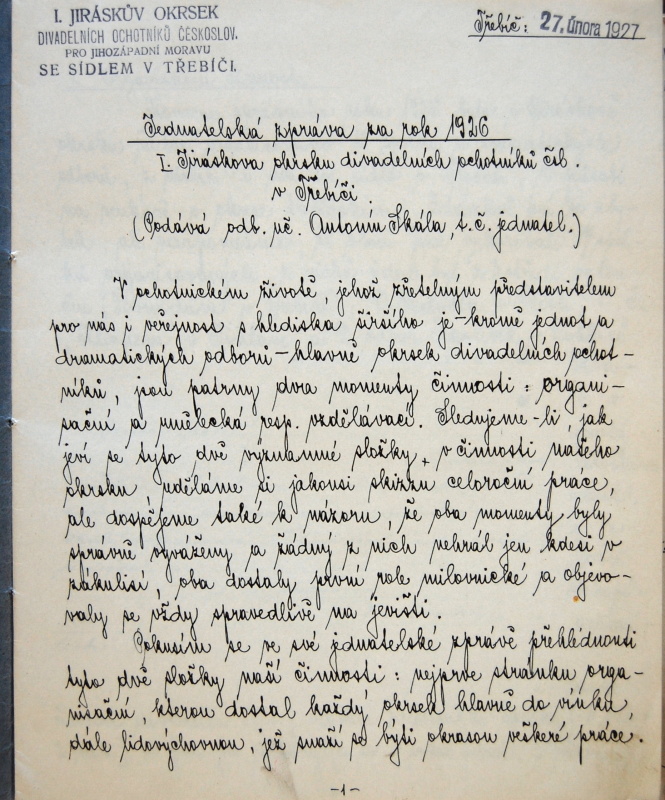 I. JIRÁSKŮV OKRSEK
DIVADELNÍCH OCHOTNÍKŮ ČESKOSLOV.
PRO JIHOZÁPADNÍ MORAVU
SE SÍDLEM V TŘEBÍČI.
Třebíč: 27. února 1927
Jednatelská zpráva za rok 1926
I. Jiráskova okrsku divadelních ochotníků čsl.
v Třebíči.
(Podává odb. uč. Antonín Skála, t. č. jednatel.)
V ochotnickém životě, jehož zřetelným představitelem
pro nás i veřejnost s hlediska širšího je - kromě jednot a
dramatických odborů - hlavně okrsek divadelních ochot-
níků, jsou patrny dva momenty činnosti: organi-
sační a umělecká resp. vzdělávací. Sledujeme-li, jak
jeví se tyto dvě významné složky v činnosti našeho
okrsku, uděláme si jakousi skizzu celoroční práce,
ale dospějeme také k názoru, že oba momenty byly
správně vyváženy a žádný z nich nehrál jen kdesi v
zákulisí, oba dostaly první role milovnické a objevo-
valy se vždy spravedlivě na jevišti.
Pokusím se ve své jednatelské zprávě přehlédnouti
tyto dvě složky naší činnosti: nejprve stránku orga-
nisační, kterou dostal každý okrsek hlavně do vínku,
dále lidovýchovnou, jež snaží se býti okrasou veškeré práce.
-1-